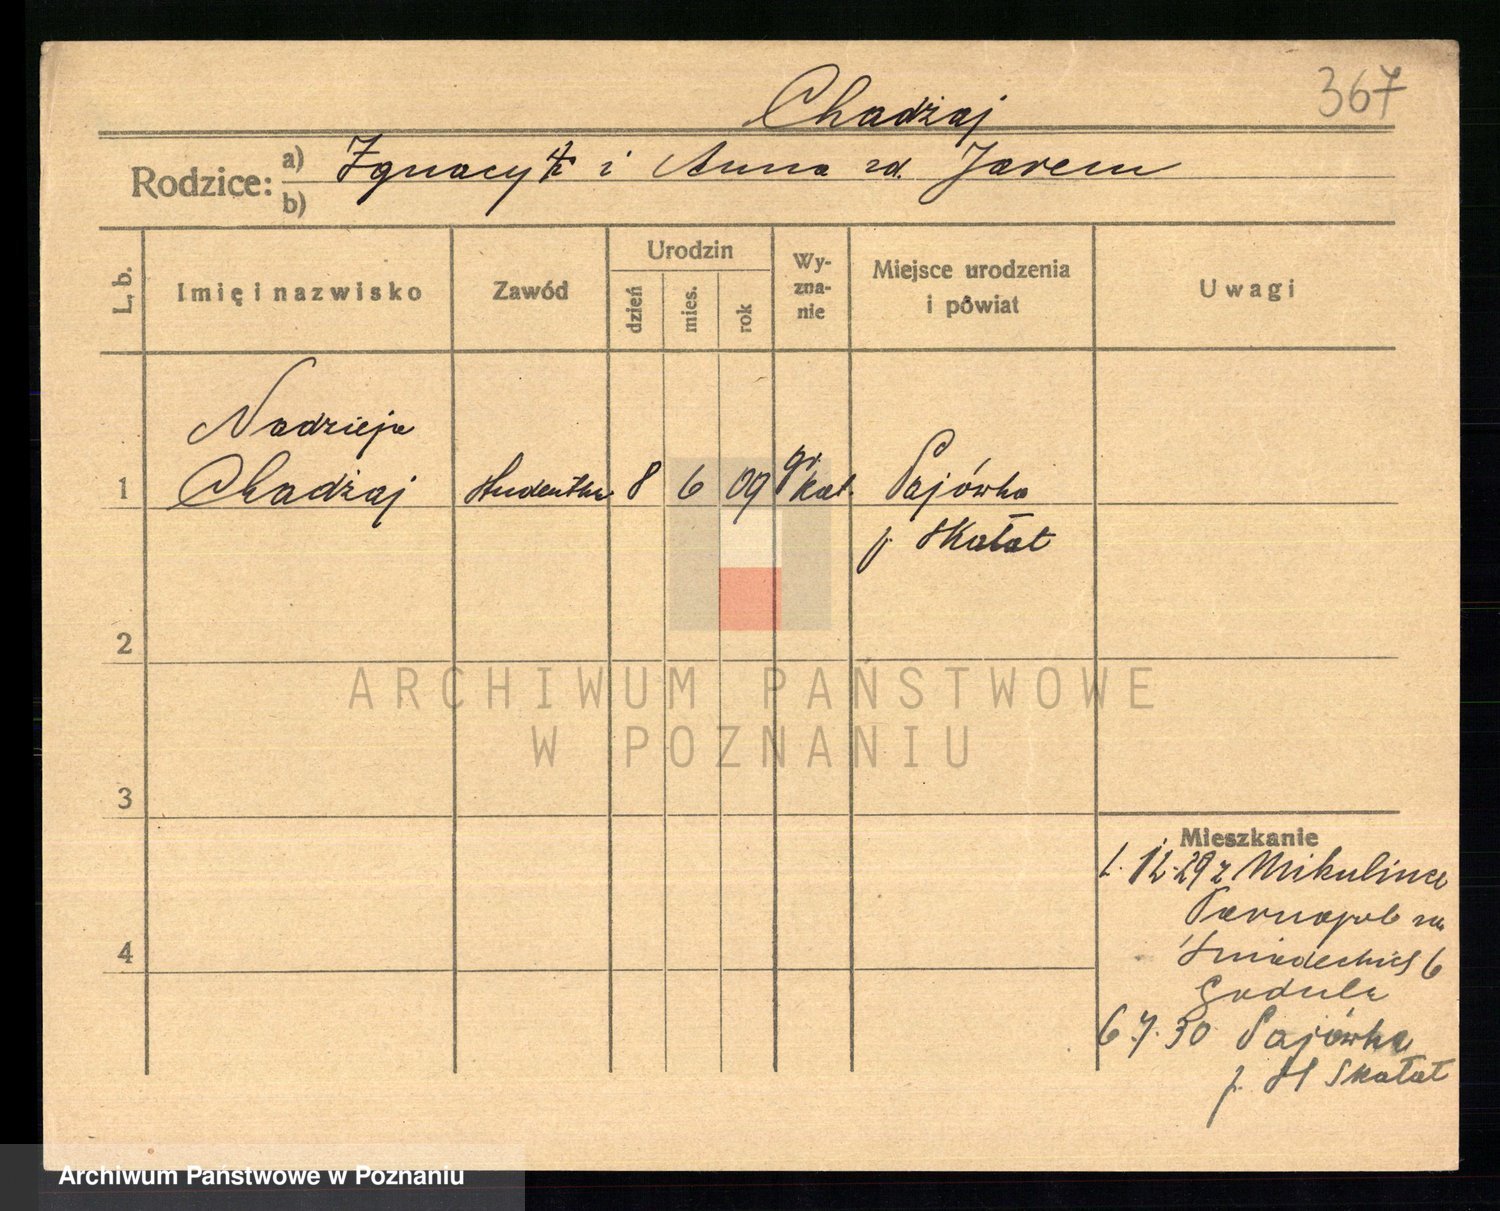 367
Chadżaj
Rodzice: a) Ignacy i Anna zd. Jarem
b)
L. b. Imię i nazwisko Zawód Urodzin dzień mies. rok Wyznanie Miejsce urodzenia i powiat Uwagi
Nadzieja
1 Chadżaj studentka 8 6 09 gr. kat. Pajówka
p. Skałat
2
3
4
Mieszkanie
1.12.29 z Mikulince
Tarnopol na
Śniadeckich 6
Godula
6.7.30 Pajówka
p. Skałat
ARCHIWUM PAŃSTWOWE
W POZNANIU
Archiwum Państwowe w Poznaniu